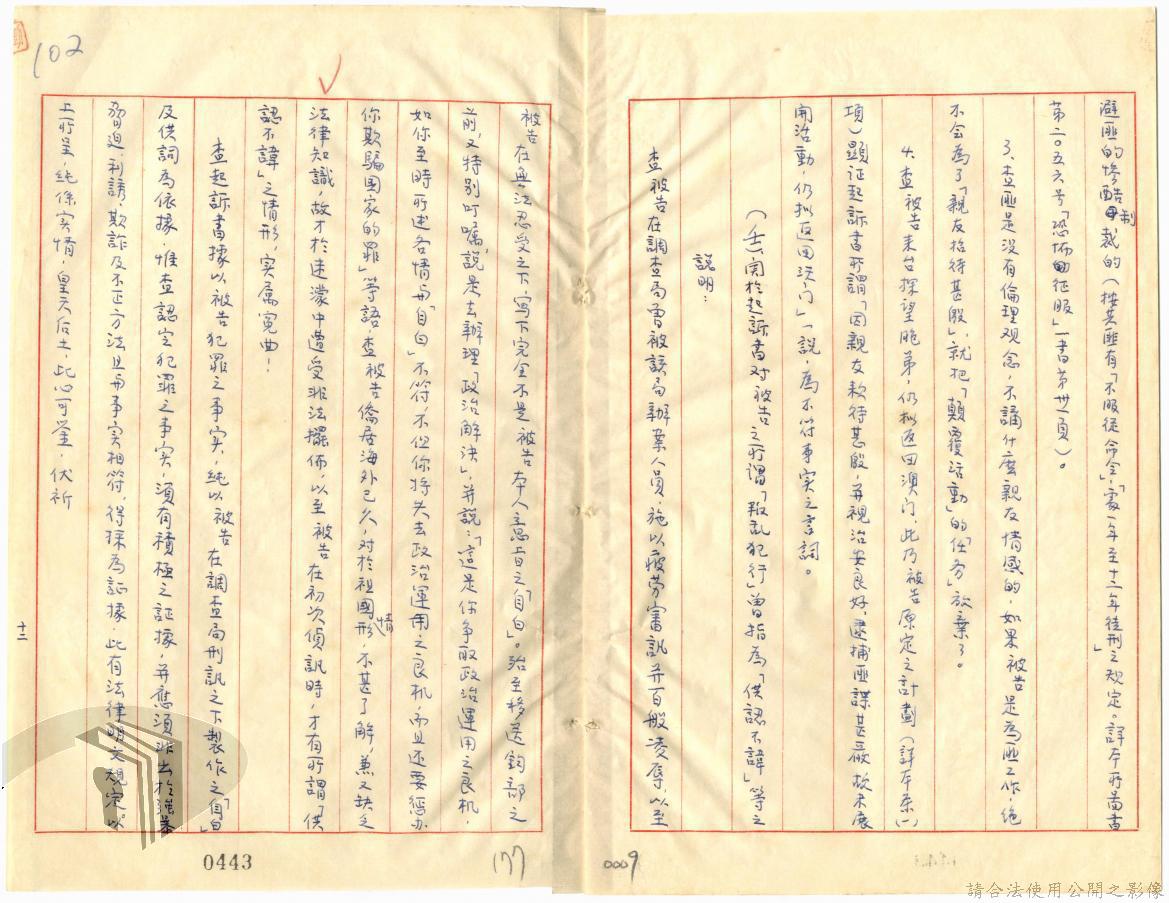 避匪的慘酷制裁的（按共匪有「不服從命令」，「處一年至十二年徒刑之規定。」詳本所圖書
第二０五六号「恐怖的征服」一書第卅一頁）。
3、查匪是没有倫理观念，不講什麽親友情感的，如果被告是為匪工作，绝
不会為了「親友招待甚殷」，就把「顛覆活動」的「任务」放棄了。
4、查被告来台探望胞弟，仍拟返回澳门，此乃被告原定之計劃（詳本条(一)
項）顯证起訴書所謂「因親友款待甚殷，并視治安良好，逮捕匪諜甚嚴，故未展
開活動，仍拟返回澳门」一說，為不符事实之言詞。
(七)関於起訴書对被告之所谓「叛乱犯行」曾指為「供認不諱」等之
說明：
查被告在調查局曾被該局辦案人員，施以疲劳審訊并百般凌辱，以至
被告在無法忍受之下，寫下完全不是被告本人意上之「自白」。殆至移送鈞部之
前，又特別叮嘱，說是去辦理「政治解決」，并說：「這是你争取政治運用之良机，
如你至時所述各情与「自白」不符，不但你將失去政治運用之良机，而且还要惩办
你欺騙国家的罪」等語，查被告僑居海外已久，对於祖國情形，不甚了解，兼又缺乏
法律知識，故才於迷濛中遭受非法擺佈，以至被告在初次偵訊時，才有所謂「供
認不諱」之情形，实属冤曲！
查起訴書據以被告犯罪之事实，純以被告在調查局刑訊之下製作之「自白」
及供詞為依據，惟查認定犯罪之事实，須有積極之証據，并應須非出於強暴
脅迫，利誘，欺詐及不正方法且与事实相符，得採為証據，此有法律明文規定。以
上所呈，純係实情，皇天后土，此心可鉴，伏祈
十二
102
0443
177
0009
請合法使用公開之影像